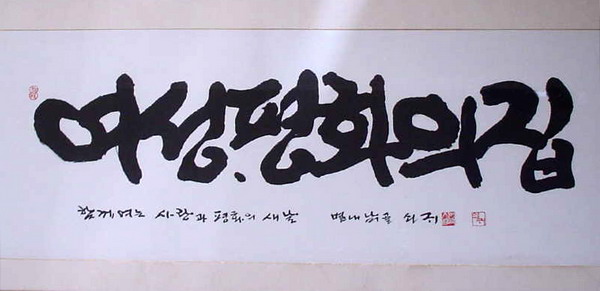 여성.평화의집
함께여는 사랑과 평화의 새날